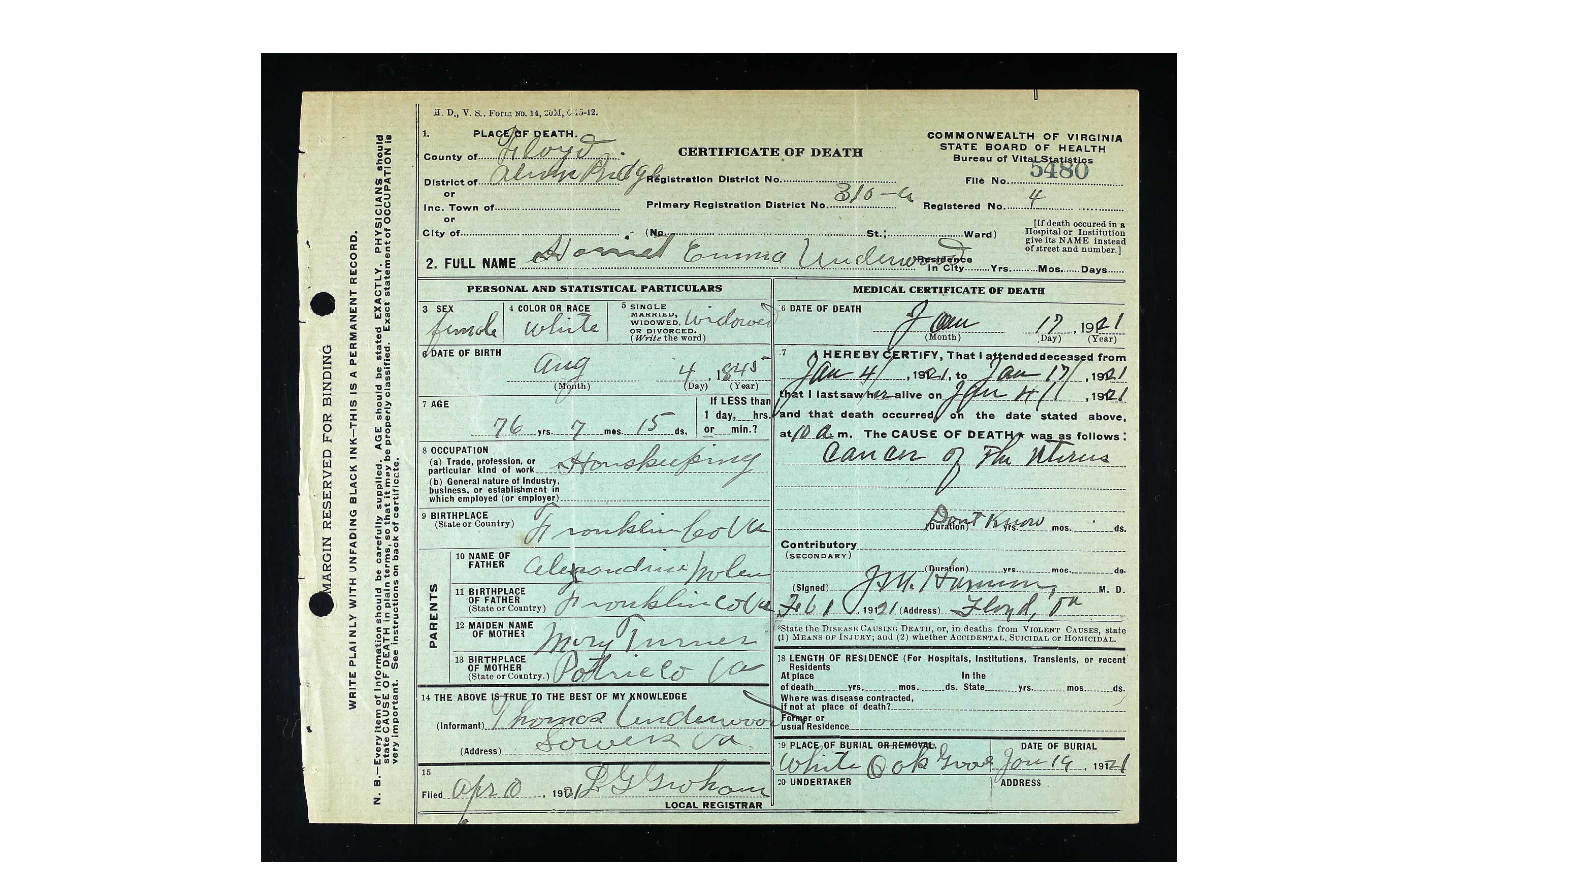 H. D., V. S. Form No. 14, 20M, 6-15-12.
1. PLACE OF DEATH.
County of Floyd
CERTIFICATE OF DEATH
COMMONWEALTH OF VIRGINIA
STATE BOARD OF HEALTH
Bureau of Vital Statistics
District of Ridge
Registration District No.
File No. 5480
or
Inc. Town of
Primary Registration District No. 310-a
Registered No. 4
or
City of
(No. St.; Ward)
[If death occured in a
Hospital or Institution
give its NAME instead
of street and number.]
2. FULL NAME Emma Underwood
Residence
In City Yrs. Mos. Days
PERSONAL AND STATISTICAL PARTICULARS
3 SEX
female
4 COLOR OR RACE
White
5 SINGLE
MARRIED,
WIDOWED,
OR DIVORCED.
(Write the word)
Widowed
6 DATE OF BIRTH
Aug 4, 1845
(Month) (Day) (Year)
7 AGE
76 yrs. 7 mos. 15 ds.
If LESS than
1 day, hrs.
or min.?
8 OCCUPATION
(a) Trade, profession, or
particular kind of work Houskeeping
(b) General nature of Industry,
business, or establishment in
which employed (or employer)
9 BIRTHPLACE
(State or Country) Franklin Co Va
PARENTS
10 NAME OF
FATHER
11 BIRTHPLACE
OF FATHER
(State or Country) Franklin Co Va
12 MAIDEN NAME
OF MOTHER Mary Turner
13 BIRTHPLACE
OF MOTHER
(State or Country.) Patric Co Va
14 THE ABOVE IS TRUE TO THE BEST OF MY KNOWLEDGE
(Informant) Thomas Underwood
(Address) Sowers Va
15
Filed Apr 10, 1921 Graham
LOCAL REGISTRAR
MEDICAL CERTIFICATE OF DEATH
16 DATE OF DEATH
Jan 17, 1921
(Month) (Day) (Year)
17 I HEREBY CERTIFY, That I attended deceased from
Jan 4, 1921, to Jan 17, 1921
that I last saw her alive on Jan 4, 1921
and that death occurred, on the date stated above,
at 10 a. m. The CAUSE OF DEATH* was as follows:
Cancer of the Uterus
Dont Know
(Duration) yrs. mos. ds.
Contributory
(SECONDARY)
(Duration) yrs. mos. ds.
(Signed) J.M. M. D.
Feb 1, 1921 (Address) Floyd, Va
*State the DISEASE CAUSING DEATH, or, in deaths from VIOLENT CAUSES, state
(1) MEANS OF INJURY; and (2) whether ACCIDENTAL, SUICIDAL or HOMICIDAL.
18 LENGTH OF RESIDENCE (For Hospitals, Institutions, Transients, or recent
Residents
At place In the
of death yrs. mos. ds. State yrs. mos. ds.
Where was disease contracted,
if not at place of death?
Former or
usual Residence
19 PLACE OF BURIAL OR REMOVAL.
White Oak Grove
DATE OF BURIAL
Jan 19, 1921
20 UNDERTAKER
ADDRESS
MARGIN RESERVED FOR BINDING
WRITE PLAINLY WITH UNFADING BLACK INK—THIS IS A PERMANENT RECORD.
N. B.—Every item of information should be carefully supplied. AGE should be stated EXACTLY. PHYSICIANS should
state CAUSE OF DEATH in plain terms, so that it may be properly classified. Exact statement of OCCUPATION is
very important. See instructions on back of certificate.